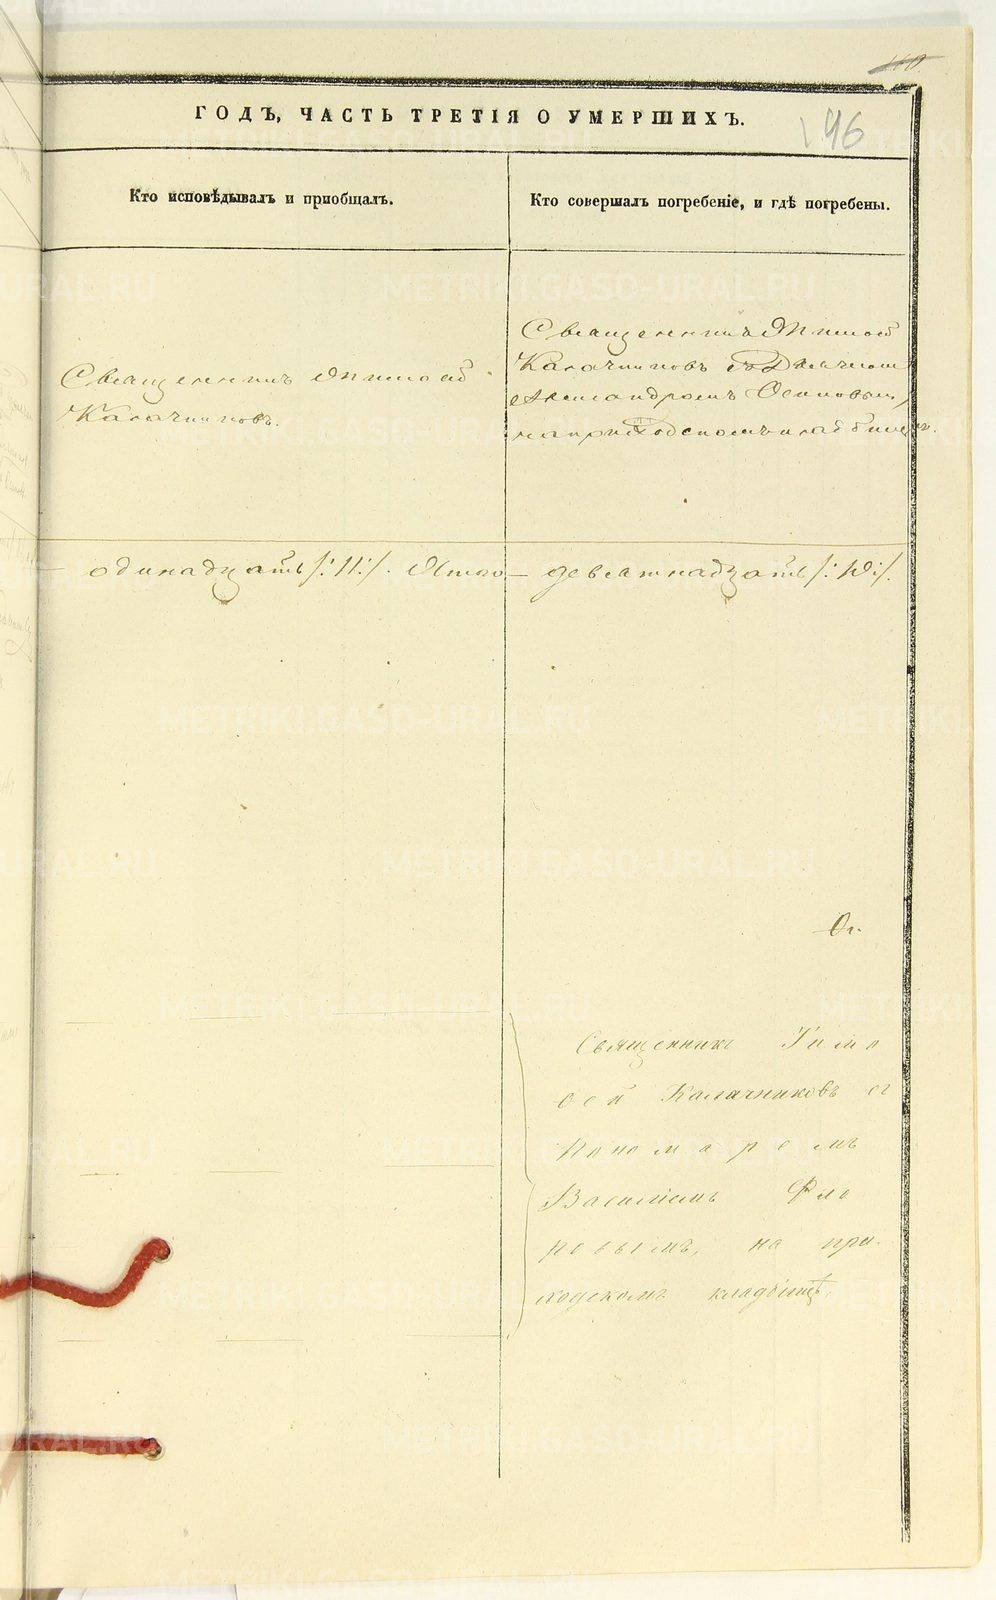 110
ГОДЪ, ЧАСТЬ ТРЕТІЯ О УМЕРШИХЪ.
96
Кто исповѣдывалъ и пріобщалъ.
Кто совершалъ погребеніе, и гдѣ погребены.
Священникъ Тимоѳей
Калачниковъ.
Священникъ Тимоѳей
Калачниковъ съ Дьячкомъ
Александромъ Осиповым,
на приходскомъ кладбищѣ.
одинадцать /:11:/. Итого — девятнадцать /:19:/.
Священникъ Тимо
ѳей Калачниковъ съ
Пономаремъ
Василіемъ Фло
ровымъ, на при-
ходскомъ кладбищѣ.
METRIKI.GASO-URAL.RU